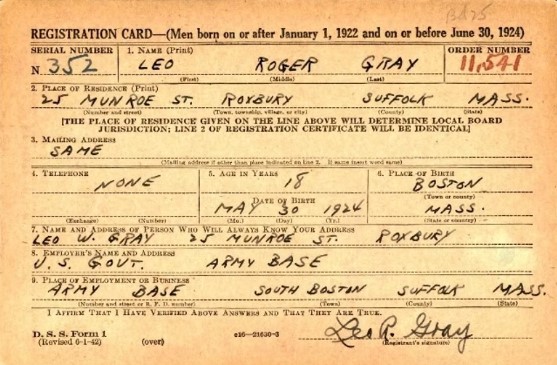 REGISTRATION CARD—(Men born on or after January 1, 1922 and on or before June 30, 1924)
SERIAL NUMBER 1. NAME (Print) ORDER NUMBER
N 352 LEO ROGER GRAY 11,541
(First) (Middle) (Last)
2. PLACE OF RESIDENCE (Print)
25 MUNROE ST. ROXBURY SUFFOLK MASS.
(Number and street) (Town, township, village, or city) (County) (State)
[THE PLACE OF RESIDENCE GIVEN ON THE LINE ABOVE WILL DETERMINE LOCAL BOARD
JURISDICTION; LINE 2 OF REGISTRATION CERTIFICATE WILL BE IDENTICAL]
3. MAILING ADDRESS
SAME
(Mailing address if other than place indicated on line 2. If same insert word same)
4. TELEPHONE 5. AGE IN YEARS 6. PLACE OF BIRTH
NONE 18 BOSTON
(Town or county)
DATE OF BIRTH
MAY 30 1924 MASS.
(Exchange) (Number) (Mo.) (Day) (Yr.) (State or country)
7. NAME AND ADDRESS OF PERSON WHO WILL ALWAYS KNOW YOUR ADDRESS
LEO W. GRAY 25 MUNROE ST. ROXBURY
8. EMPLOYER'S NAME AND ADDRESS
U.S. GOVT. ARMY BASE
9. PLACE OF EMPLOYMENT OR BUSINESS
ARMY BASE SOUTH BOSTON SUFFOLK MASS.
(Number and street or R. F. D. number) (Town) (County) (State)
I AFFIRM THAT I HAVE VERIFIED ABOVE ANSWERS AND THAT THEY ARE TRUE.
D. S. S. Form 1
(Revised 6-1-42) (over) Leo R. Gray
(Registrant's signature)